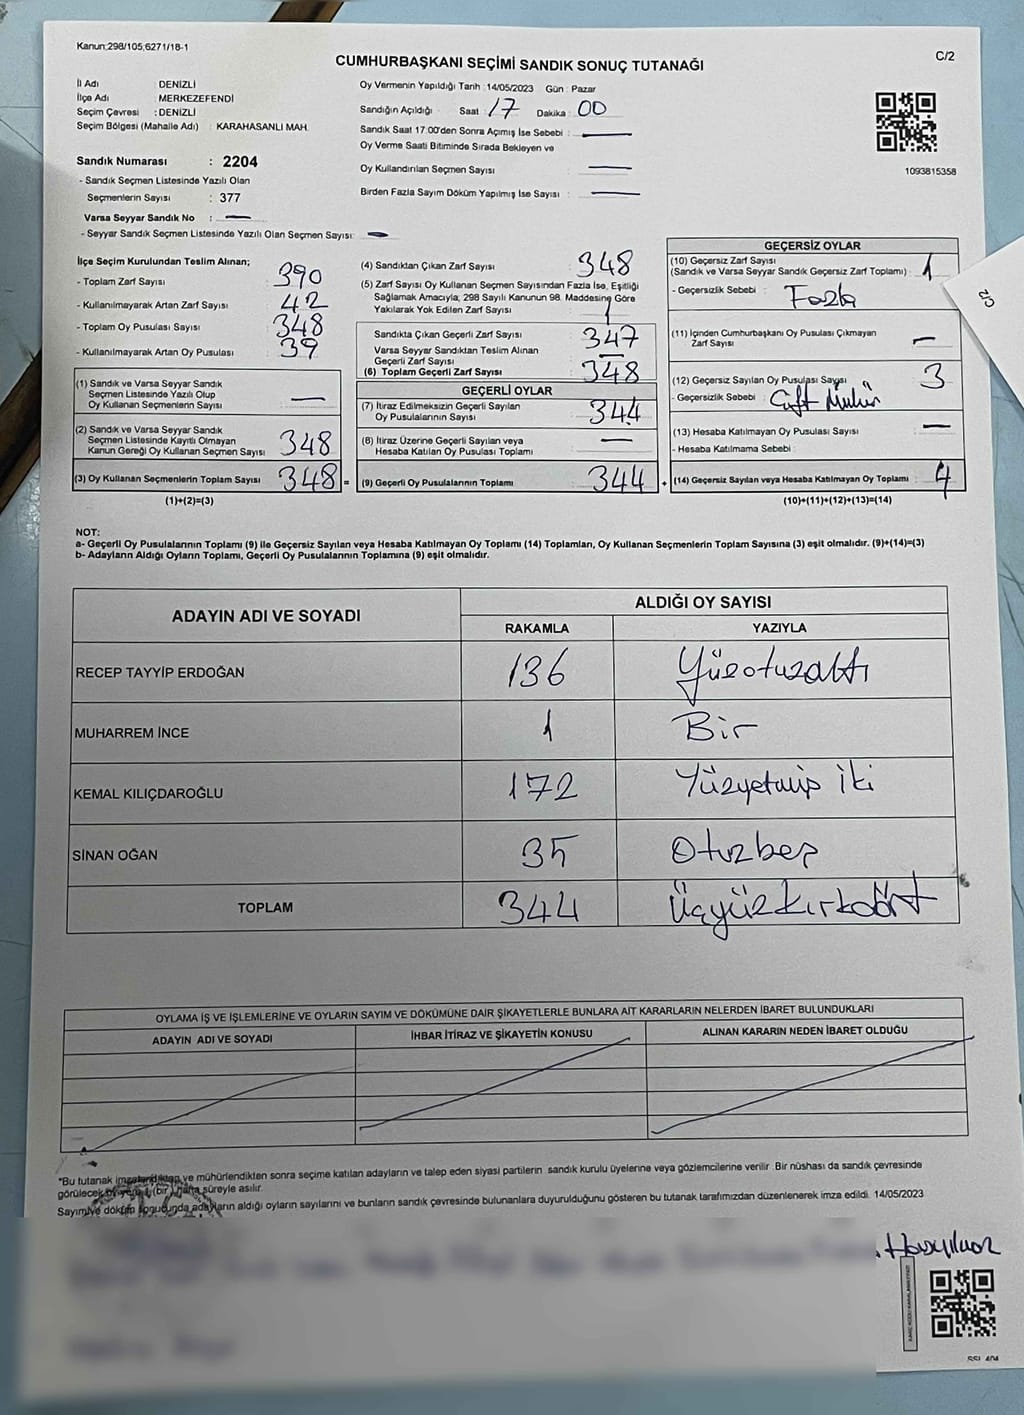 Kanun;298/105;6271/18-1
C/2
CUMHURBAŞKANI SEÇİMİ SANDIK SONUÇ TUTANAĞI
İl Adı : DENİZLİ
İlçe Adı : MERKEZEFENDİ
Seçim Çevresi : DENİZLİ
Seçim Bölgesi (Mahalle Adı) : KARAHASANLI MAH.
Sandık Numarası : 2204
- Sandık Seçmen Listesinde Yazılı Olan
Seçmenlerin Sayısı : 377
Varsa Seyyar Sandık No : —
- Seyyar Sandık Seçmen Listesinde Yazılı Olan Seçmen Sayısı: —
Oy Vermenin Yapıldığı Tarih :14/05/2023 Gün : Pazar
Sandığın Açıldığı Saat : 17 Dakika : 00
Sandık Saat 17.00'den Sonra Açımış İse Sebebi : —
Oy Verme Saati Bitiminde Sırada Bekleyen ve
Oy Kullandırılan Seçmen Sayısı : —
Birden Fazla Sayım Döküm Yapılmış İse Sayısı : —
1093815358
C/2
İlçe Seçim Kurulundan Teslim Alınan;
- Toplam Zarf Sayısı : 390
- Kullanılmayarak Artan Zarf Sayısı : 42
- Toplam Oy Pusulası Sayısı : 348
- Kullanılmayarak Artan Oy Pusulası : 39
(1) Sandık ve Varsa Seyyar Sandık
Seçmen Listesinde Yazılı Olup
Oy Kullanan Seçmenlerin Sayısı : —
(2) Sandık ve Varsa Seyyar Sandık
Seçmen Listesinde Kayıtlı Olmayan
Kanun Gereği Oy Kullanan Seçmen Sayısı : 348
(3) Oy Kullanan Seçmenlerin Toplam Sayısı : 348 =
(1)+(2)=(3)
(4) Sandıktan Çıkan Zarf Sayısı : 348
(5) Zarf Sayısı Oy Kullanan Seçmen Sayısından Fazla İse, Eşitliği
Sağlamak Amacıyla; 298 Sayılı Kanunun 98. Maddesine Göre
Yakılarak Yok Edilen Zarf Sayısı : 1
Sandıkta Çıkan Geçerli Zarf Sayısı : 347
Varsa Seyyar Sandıktan Teslim Alınan
Geçerli Zarf Sayısı : —
(6) Toplam Geçerli Zarf Sayısı : 348
GEÇERLİ OYLAR
(7) İtiraz Edilmeksizin Geçerli Sayılan
Oy Pusulalarının Sayısı : 344
(8) İtiraz Üzerine Geçerli Sayılan veya
Hesaba Katılan Oy Pusulası Toplamı : —
(9) Geçerli Oy Pusulalarının Toplamı : 344 +
GEÇERSİZ OYLAR
(10) Geçersiz Zarf Sayısı
(Sandık ve Varsa Seyyar Sandık Geçersiz Zarf Toplamı) : 1
- Geçersizlik Sebebi : Fazla
(11) İçinden Cumhurbaşkanı Oy Pusulası Çıkmayan
Zarf Sayısı : —
(12) Geçersiz Sayılan Oy Pusulası Sayısı : 3
- Geçersizlik Sebebi : Çift Mühür
(13) Hesaba Katılmayan Oy Pusulası Sayısı : —
- Hesaba Katılmama Sebebi :
(14) Geçersiz Sayılan veya Hesaba Katılmayan Oy Toplamı : 4
(10)+(11)+(12)+(13)=(14)
NOT:
a- Geçerli Oy Pusulalarının Toplamı (9) ile Geçersiz Sayılan veya Hesaba Katılmayan Oy Toplamı (14) Toplamları, Oy Kullanan Seçmenlerin Toplam Sayısına (3) eşit olmalıdır. (9)+(14)=(3)
b- Adayların Aldığı Oyların Toplamı, Geçerli Oy Pusulalarının Toplamına (9) eşit olmalıdır.
ADAYIN ADI VE SOYADI
ALDIĞI OY SAYISI
RAKAMLA YAZIYLA
RECEP TAYYİP ERDOĞAN 136 Yüzotuzaltı
MUHARREM İNCE 1 Bir
KEMAL KILIÇDAROĞLU 172 Yüzyetmiş iki
SİNAN OĞAN 35 Otuzbeş
TOPLAM 344 Üçyüzkırkdört
OYLAMA İŞ VE İŞLEMLERİNE VE OYLARIN SAYIM VE DÖKÜMÜNE DAİR ŞİKAYETLERLE BUNLARA AİT KARARLARIN NELERDEN İBARET BULUNDUKLARI
ADAYIN ADI VE SOYADI İHBAR İTİRAZ VE ŞİKAYETİN KONUSU ALINAN KARARIN NEDEN İBARET OLDUĞU
*Bu tutanak imzalandıktan ve mühürlendikten sonra seçime katılan adayların ve talep eden siyasi partilerin sandık kurulu üyelerine veya gözlemcilerine verilir. Bir nüshası da sandık çevresinde
görülecek bir yere 1 (bir) hafta süreyle asılır.
Sayım ve döküm sonucunda adayların aldığı oyların sayılarını ve bunların sandık çevresinde bulunanlara duyurulduğunu gösteren bu tutanak tarafımızdan düzenlenerek imza edildi. 14/05/2023